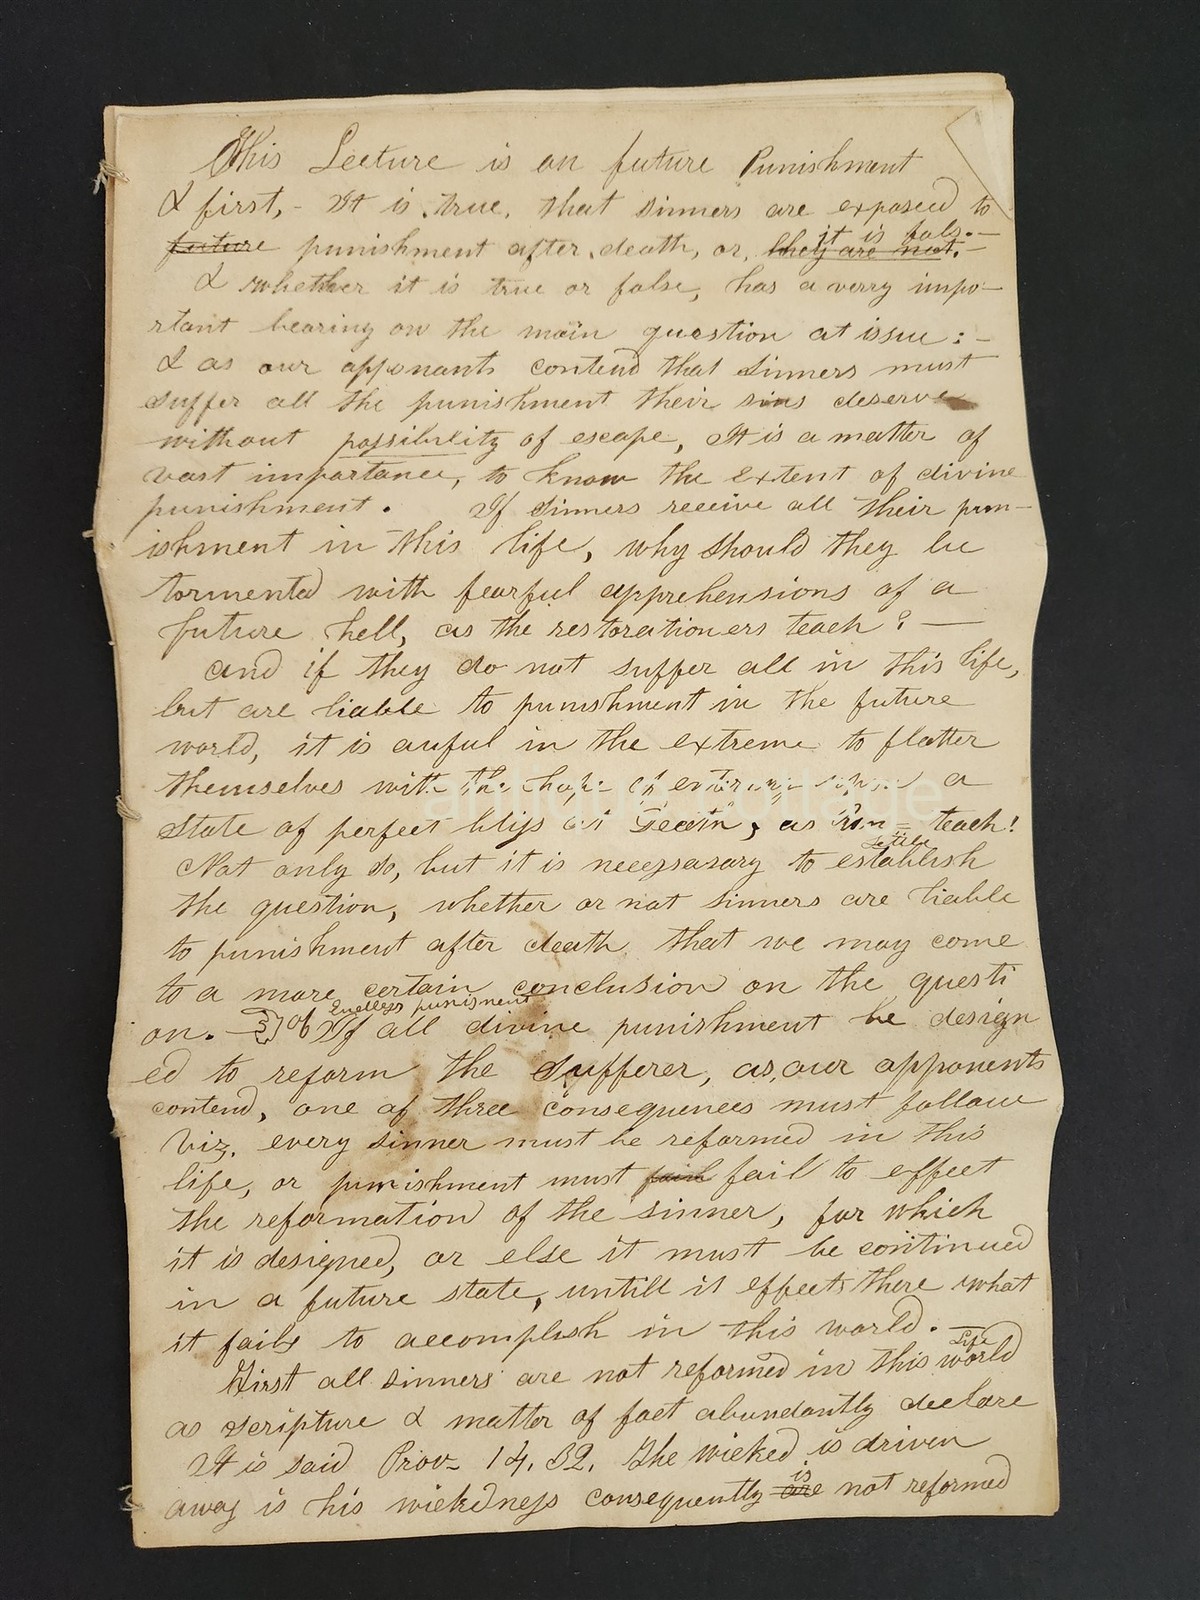 This Lecture is on future Punishment
& first,- It is true, that sinners are exposed to
it is fals.-
future punishment after death, or, they are not.-
& whether it is true or false, has a verry impo-
rtant bearing on the main question at issue :-
& as our opponants contend that sinners must
suffer all the punishment their sins deserve
without possibility of escape, It is a matter of
vast importance, to know the extent of divine
punishment. If sinners receive all their pun-
ishment in this life, why should they be
tormented with fearful apprehensions of a
future hell, as the restorationers teach? —
and if they do not suffer all in this life,
but are liable to punishment in the future
world, it is auful in the extreme to flatter
themselves with the hope of entering a
state of perfect bliss at death, as teach!
Settle
Not only so, but it is necessasary to establish
the question, whether or not sinners are liable
to punishment after death that we may come
to a more certain conclusion on the questi
of Endless punishment
on. — If all divine punishment be design
ed to reform the sufferer, as our opponents
contend, one of three consequences must follow
Viz. every sinner must be reformed in this
life, or punishment must fail fail to effect
the reformation of the sinner, for which
it is designed, or else it must be continued
in a future state, untill it effects there what
it fails to accomplish in this world. —
Life
First all sinners are not reformed in this world
as scripture & matter of fact abundantly declare
It is said Prov- 14. 32. The wicked is driven
is
away is his wickedness consequently are not reformed